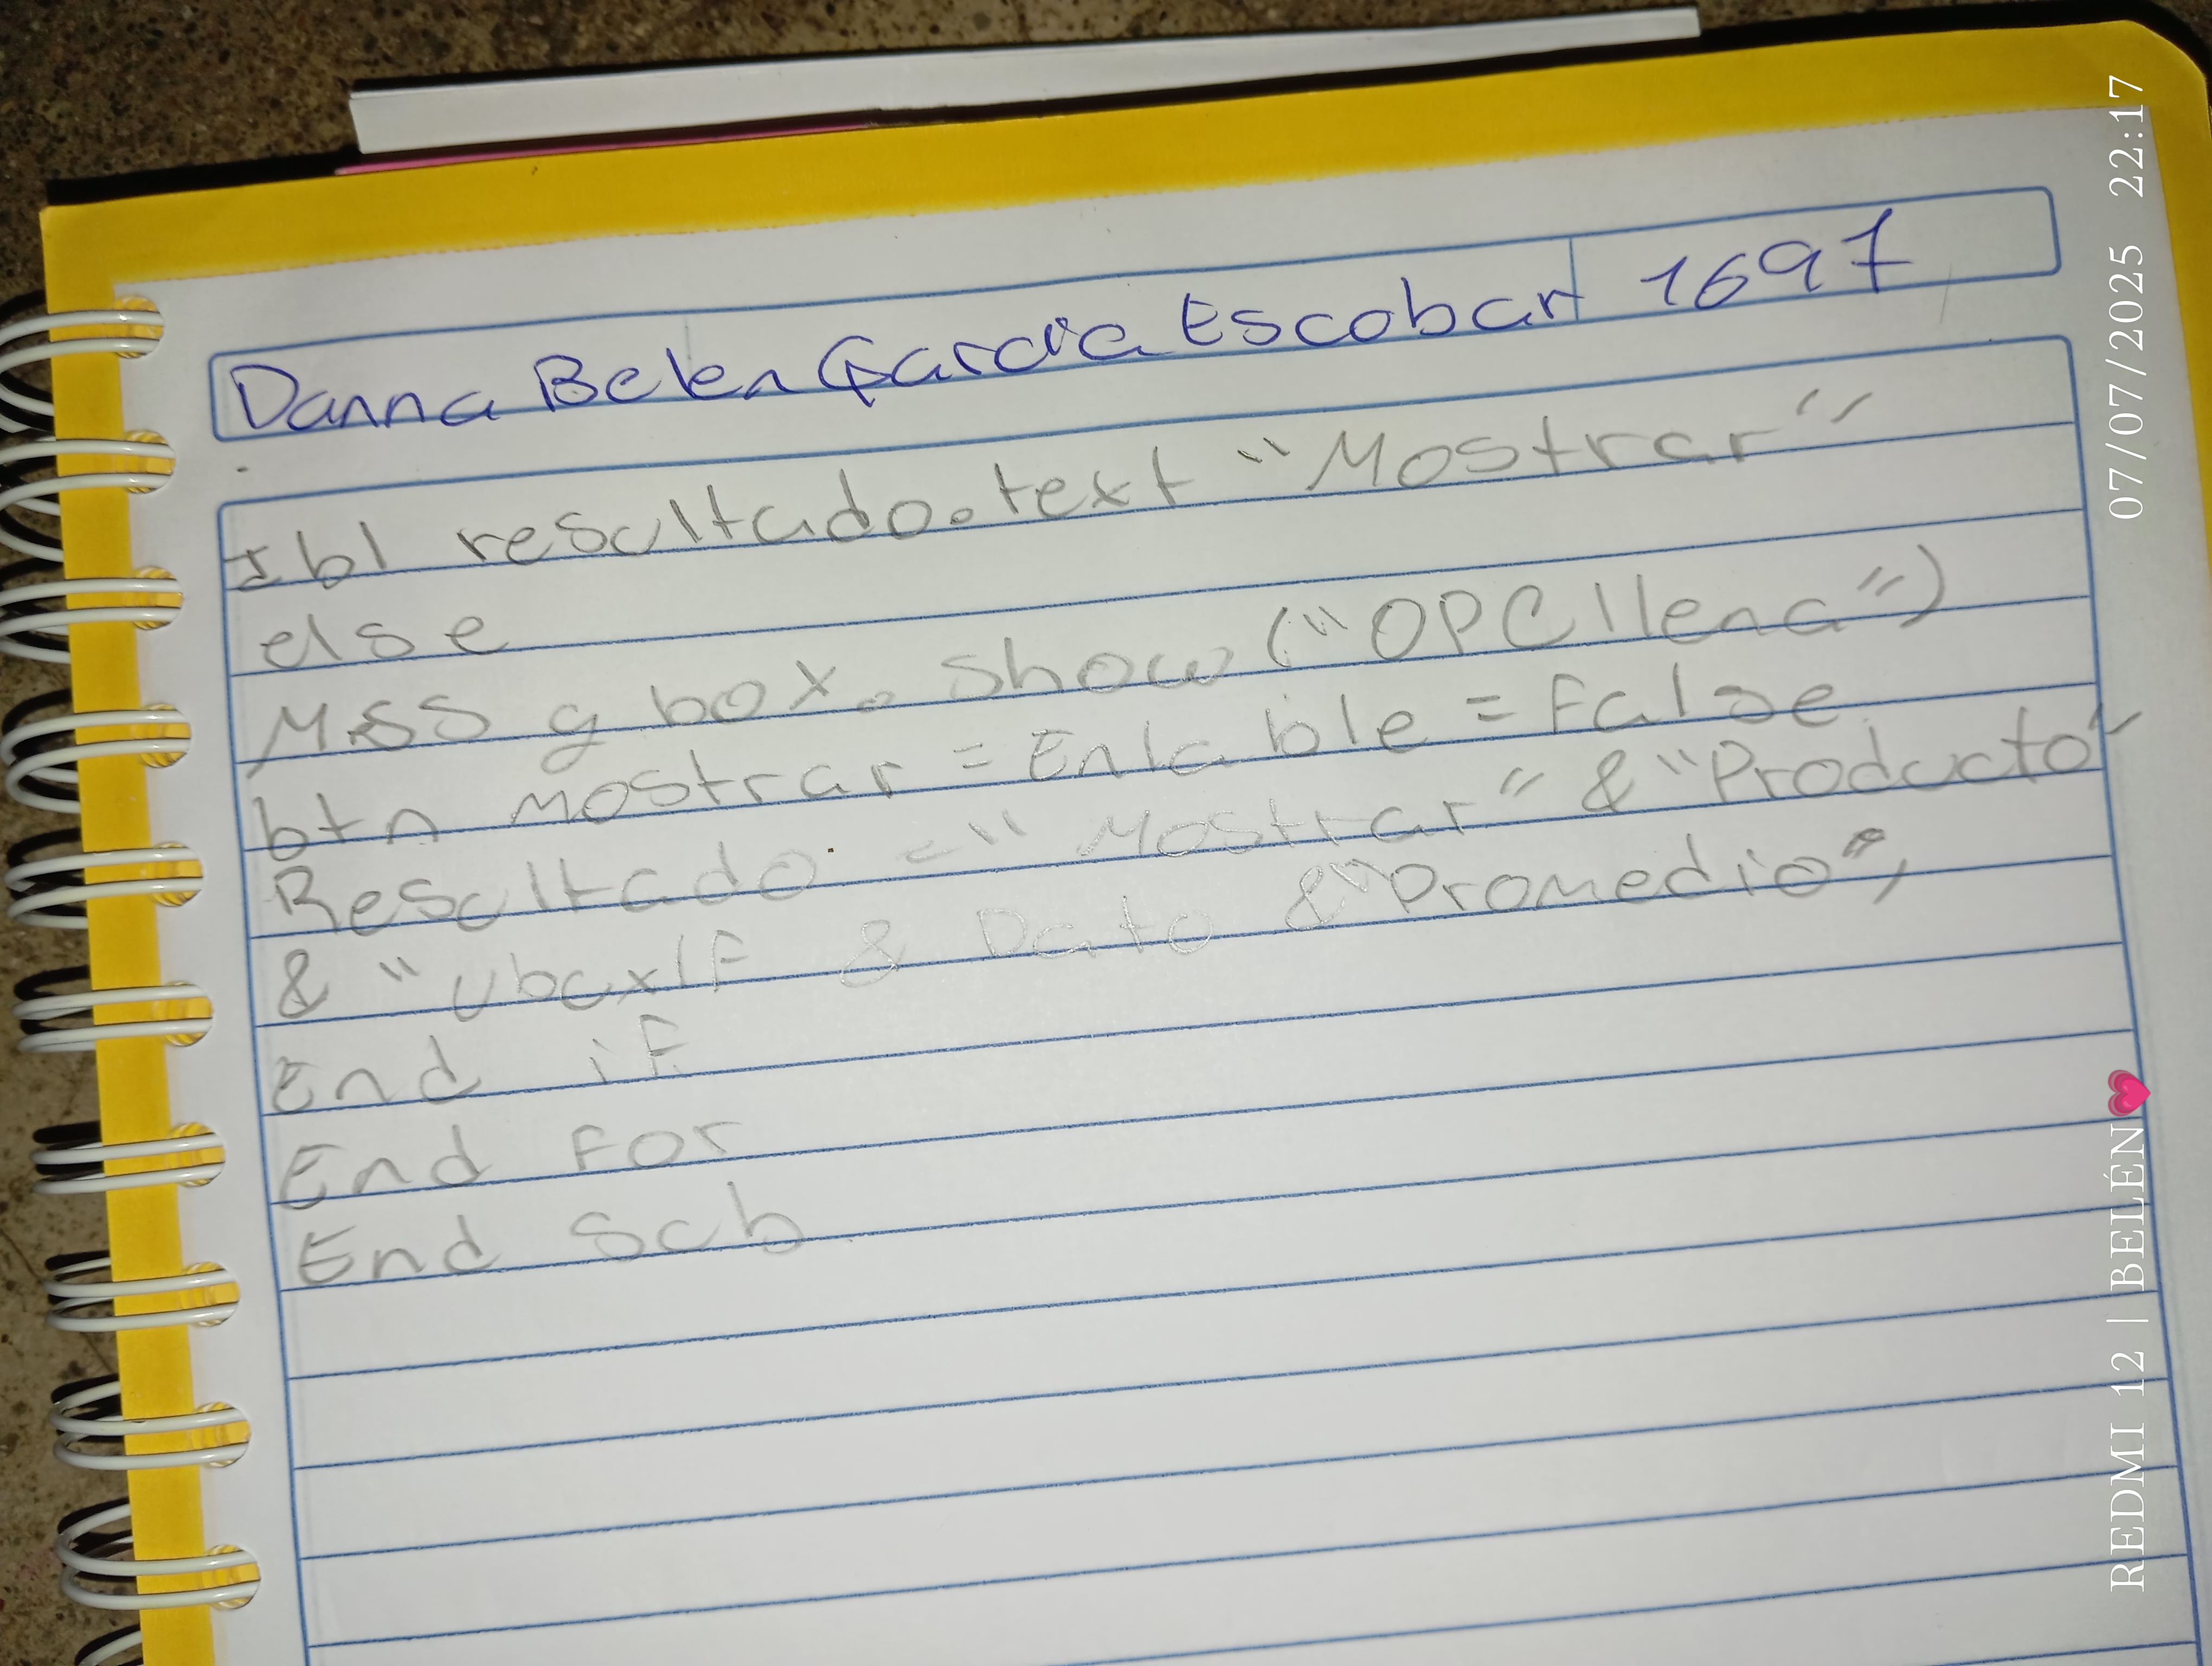 Danna Belen Garcia Escobar 1697
lbl resultado.text "Mostrar"
else
Mss g box. Show ("OPC llena")
btn mostrar = Enlable = False
Resultado = " Mostrar" & "Producto"
& " VbcxlF & Dato & "Promedio",
End iF
End For
End Sub
07/07/2025 22:17
REDMI 12 | BELÉN💗